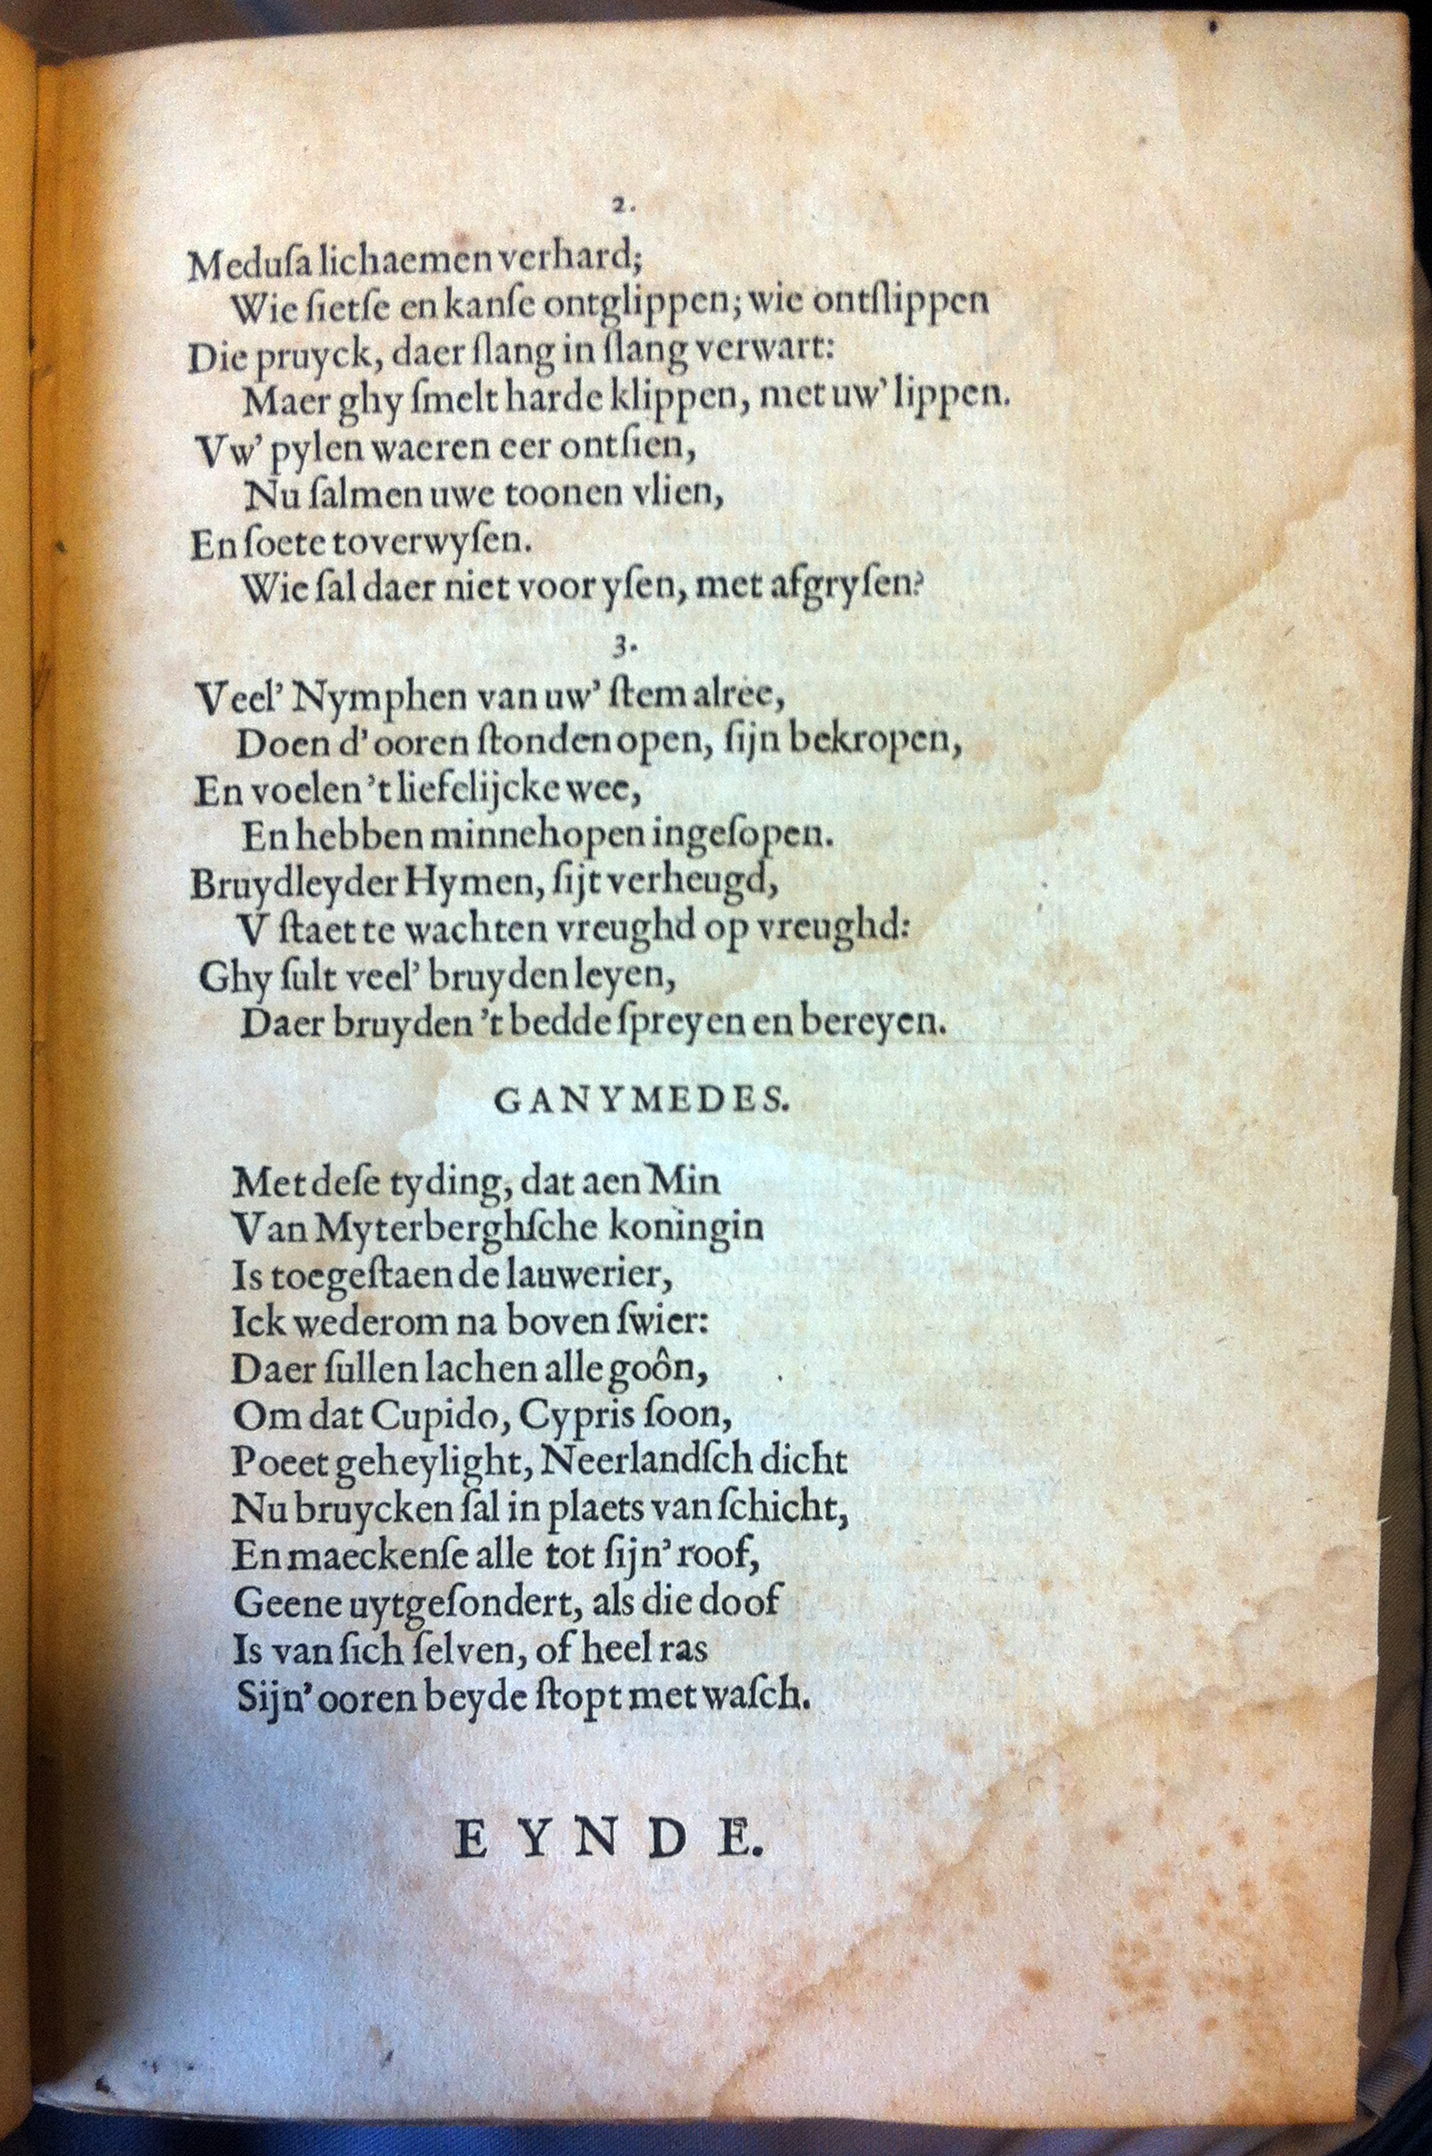 2.
Meduſa lichaemen verhard;
Wie ſietſe en kanſe ontglippen; wie ontſlippen
Die pruyck, daer ſlang in ſlang verwart:
Maer ghy ſmelt harde klippen, met uw' lippen.
Vw' pylen waeren eer ontſien,
Nu ſalmen uwe toonen vlien,
En ſoete toverwyſen.
Wie ſal daer niet voor yſen, met afgryſen?
3.
Veel' Nymphen van uw' ſtem alree,
Doen d' ooren ſtonden open, ſijn bekropen,
En voelen 't liefelijcke wee,
En hebben minnehopen ingeſopen.
Bruydleyder Hymen, ſijt verheugd,
V ſtaet te wachten vreughd op vreughd:
Ghy ſult veel' bruyden leyen,
Daer bruyden 't bedde ſpreyen en bereyen.
GANYMEDES.
Met deſe tyding, dat aen Min
Van Myterberghſche koningin
Is toegeſtaen de lauwerier,
Ick wederom na boven ſwier:
Daer ſullen lachen alle goôn,
Om dat Cupido, Cypris ſoon,
Poeet geheylight, Neerlandſch dicht
Nu bruycken ſal in plaets van ſchicht,
En maeckenſe alle tot ſijn' roof,
Geene uytgeſondert, als die doof
Is van ſich ſelven, of heel ras
Sijn' ooren beyde ſtopt met waſch.
EYNDE.